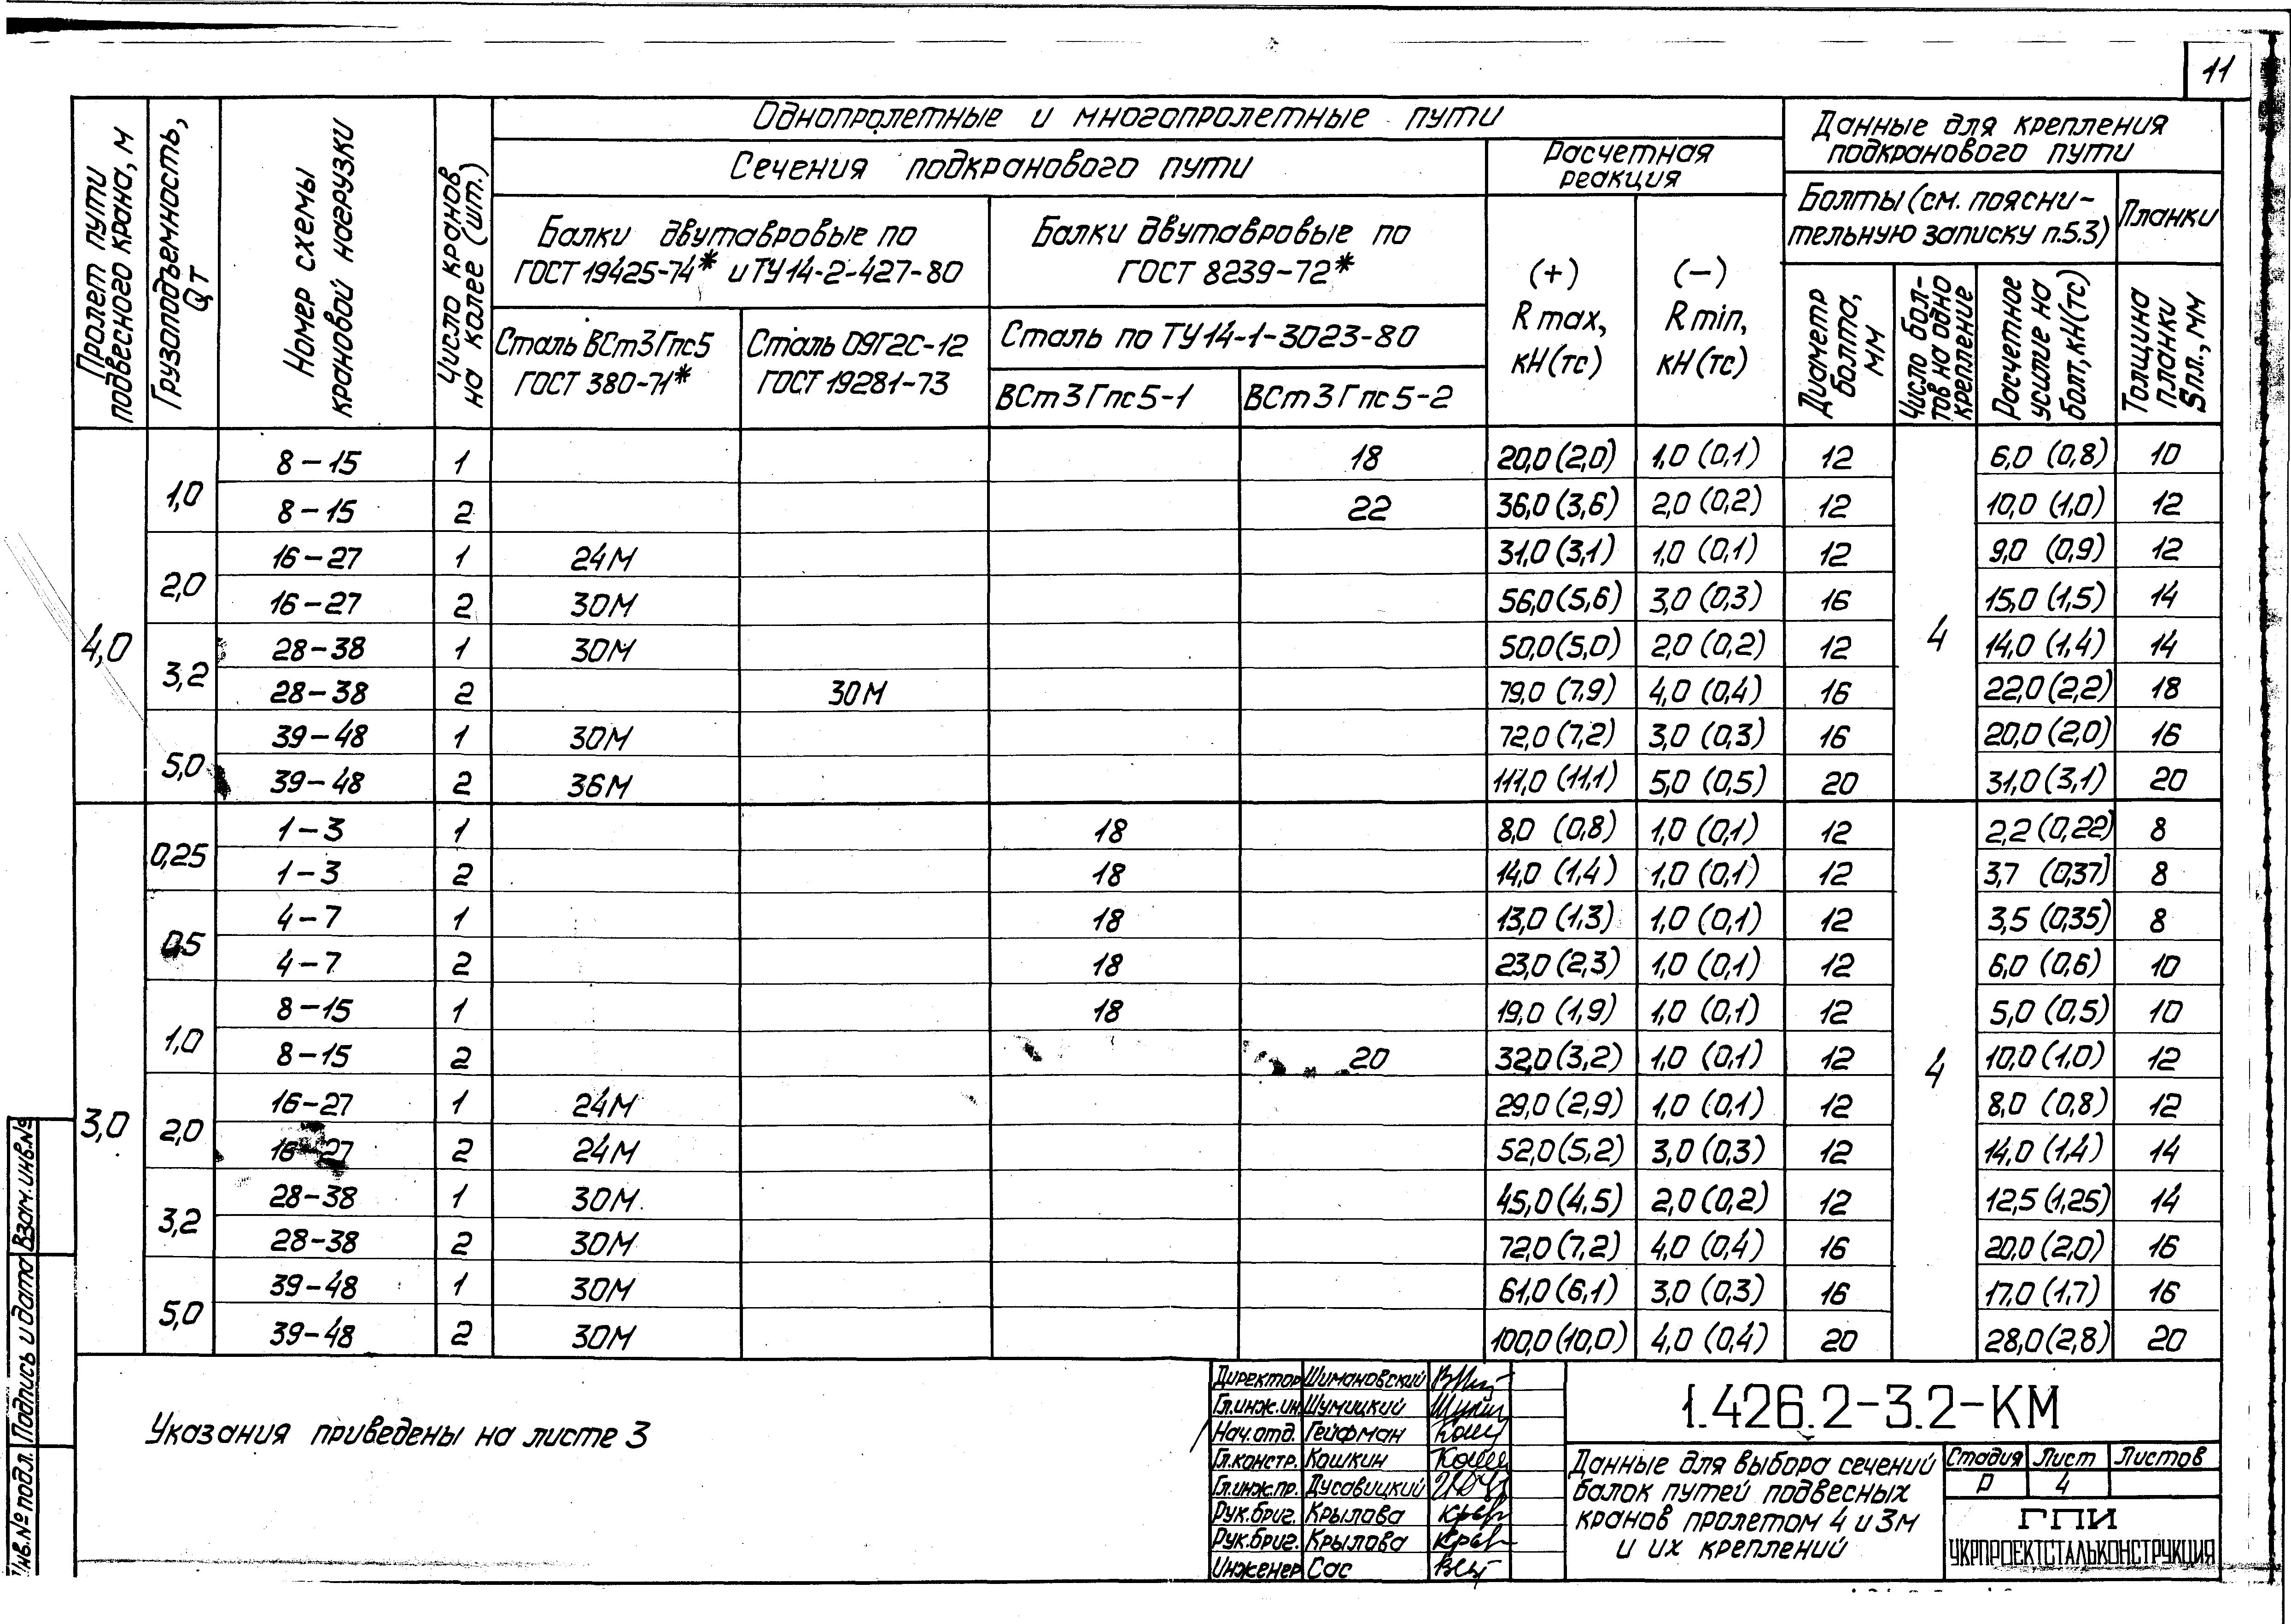 11
Пролет пути подвесного крана, м
Грузоподъемность, Qт
Номер схемы крановой нагрузки
Число кранов на колее (шт.)
Однопролетные и многопролетные пути
Данные для крепления подкранового пути
Сечения подкранового пути
Расчетная реакция
Болты (см. поясни-
тельную записку п.5.3)
Планки
Балки двутавровые по
ГОСТ 19425-74* и ТУ14-2-427-80
Балки двутавровые по
ГОСТ 8239-72*
(+)
R max,
кН(тс)
(−)
R min,
кН(тс)
Диаметр болта, мм
Число бол-
тов на одно
крепление
Расчетное
усилие на
болт, кН(тс)
Толщина
планки
Sпл., мм
Сталь ВСт3Гпс5
ГОСТ 380-71*
Сталь 09Г2С-12
ГОСТ 19281-73
Сталь по ТУ14-1-3023-80
ВСт3Гпс5-1
ВСт3Гпс5-2
4,0
1,0 8−15 1 18 20,0(2,0) 1,0 (0,1) 12 4 6,0 (0,8) 10
8−15 2 22 36,0(3,6) 2,0 (0,2) 12 10,0 (1,0) 12
2,0 16−27 1 24М 31,0(3,1) 1,0 (0,1) 12 9,0 (0,9) 12
16−27 2 30М 56,0(5,6) 3,0 (0,3) 16 15,0 (1,5) 14
3,2 28−38 1 30М 50,0(5,0) 2,0 (0,2) 12 14,0 (1,4) 14
28−38 2 30М 79,0 (7,9) 4,0 (0,4) 16 22,0(2,2) 18
5,0 39−48 1 30М 72,0 (7,2) 3,0 (0,3) 16 20,0(2,0) 16
39−48 2 36М 111,0 (11,1) 5,0 (0,5) 20 31,0(3,1) 20
3,0
0,25 1−3 1 18 8,0 (0,8) 1,0 (0,1) 12 4 2,2(0,22) 8
1−3 2 18 14,0 (1,4) 1,0 (0,1) 12 3,7 (0,37) 8
0,5 4−7 1 18 13,0 (1,3) 1,0 (0,1) 12 3,5 (0,35) 8
4−7 2 18 23,0(2,3) 1,0 (0,1) 12 6,0 (0,6) 10
1,0 8−15 1 18 19,0 (1,9) 1,0 (0,1) 12 5,0 (0,5) 10
8−15 2 20 32,0(3,2) 1,0 (0,1) 12 10,0(1,0) 12
2,0 16−27 1 24М 29,0(2,9) 1,0 (0,1) 12 8,0 (0,8) 12
16−27 2 24М 52,0(5,2) 3,0 (0,3) 12 14,0 (1,4) 14
3,2 28−38 1 30М 45,0(4,5) 2,0 (0,2) 12 12,5 (1,25) 14
28−38 2 30М 72,0(7,2) 4,0 (0,4) 16 20,0(2,0) 16
5,0 39−48 1 30М 61,0(6,1) 3,0 (0,3) 16 17,0 (1,7) 16
39−48 2 30М 100,0(10,0) 4,0 (0,4) 20 28,0(2,8) 20
Указания приведены на листе 3
Директор Шимановский
Гл.инж.ин Шумицкий
Нач.отд. Гейфман
Гл.констр. Кошкин
Гл.инж.пр. Дусавицкий
Рук.бриг. Крылова
Рук.бриг. Крылова
Инженер Сас
1.426.2-3.2-КМ
Данные для выбора сечений
балок путей подвесных
кранов пролетом 4 и 3м
и их креплений
Стадия Лист Листов
Р 4
ГПИ
УКРПРОЕКТСТАЛЬКОНСТРУКЦИЯ
Инв.№ подл. Подпись и дата Взам.инв.№